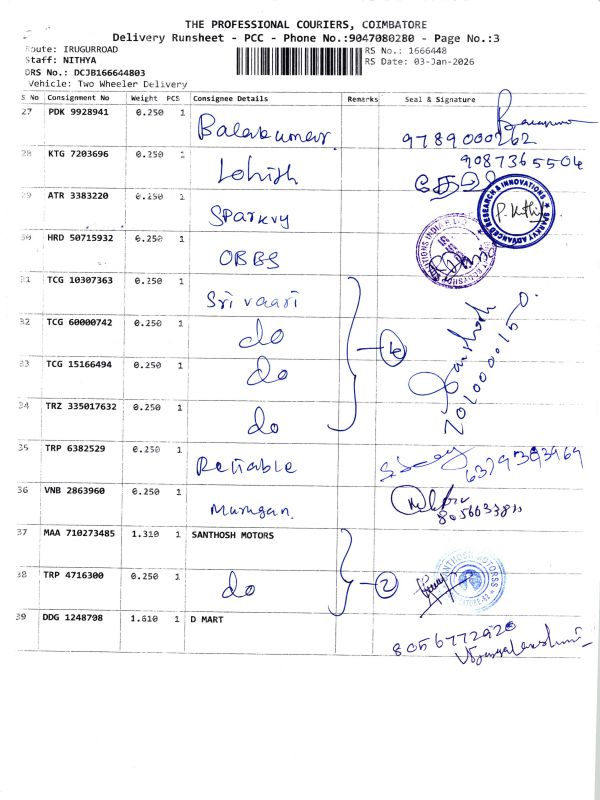 THE PROFESSIONAL COURIERS, COIMBATORE
Delivery Runsheet - PCC - Phone No.:9047080280 - Page No.:3
Route: IRUGURROAD
RS No.: 1666448
Staff: NITHYA
RS Date: 03-Jan-2026
DRS No.: DCJB166644803
Vehicle: Two Wheeler Delivery
S No Consignment No Weight PCS Consignee Details Remarks Seal & Signature
27 PDK 9928941 0.250 1 Balakumar 9789000262
28 KTG 7203696 0.250 1 Lohish 9087365504
29 ATR 3383220 0.250 1 Sparkvy
SPARKVY ADVANCED RESEARCH & INNOVATIONS
30 HRD 50715932 0.250 1 OBBS
31 TCG 10307363 0.250 1 Sri vaari
32 TCG 60000742 0.250 1 do
33 TCG 15166494 0.250 1 do
4
34 TRZ 335017632 0.250 1 do
Santhosh
35 TRP 6382529 0.250 1 Reliable
36 VNB 2863960 0.250 1 Murugan
37 MAA 710273485 1.310 1 SANTHOSH MOTORS
38 TRP 4716300 0.250 1 do 2
39 DDG 1248708 1.610 1 D MART
8056772920